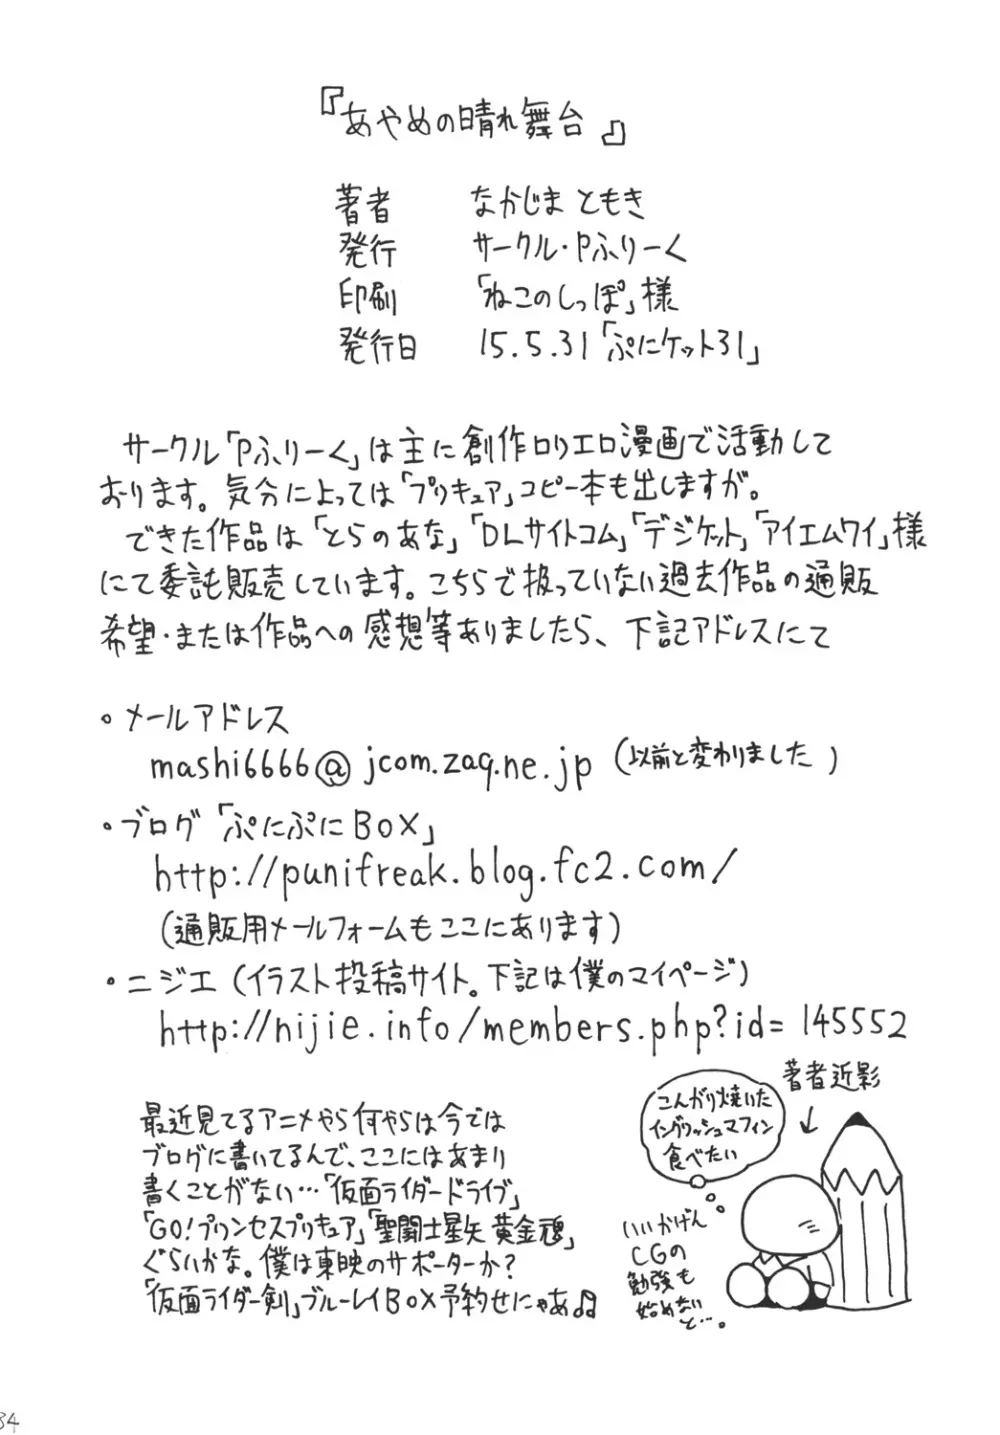 『あやめの晴れ舞台』
著者 なかじま ともき
発行 サークル・Pふりーく
印刷 「ねこのしっぽ」様
発行日 15.5.31「ぷにケット31」
サークル「Pふりーく」は主に創作ロリエロ漫画で活動して
おります。気分によっては「プリキュア」コピー本も出しますが。
できた作品は「とらのあな」「DLサイトコム」「デジケット」「アイエムワイ」様
にて委託販売しています。こちらで扱っていない過去作品の通販
希望・または作品への感想等ありましたら、下記アドレスにて
。メールアドレス
mashi6666@jcom.zaq.ne.jp (以前と変わりました)
・ブログ「ぷにぷにBOX」
http://punifreak.blog.fc2.com/
(通販用メールフォームもここにあります)
・ニジエ(イラスト投稿サイト。下記は僕のマイページ)
http://nijie.info/members.php?id=145552
最近見てるアニメやら何やらは今では
ブログに書いてるんで、ここにはあまり
書くことがない…「仮面ライダードライブ」
「GO!プリンセスプリキュア」「聖闘士星矢 黄金魂」
ぐらいかな。僕は東映のサポーターか?
「仮面ライダー剣」ブルーレイBOX予約せにゃあ♫
著者近影
こんがり焼いた
イングリッシュマフィン
食べたい
いいかげん
CGの
勉強も
始めない
と…。
34